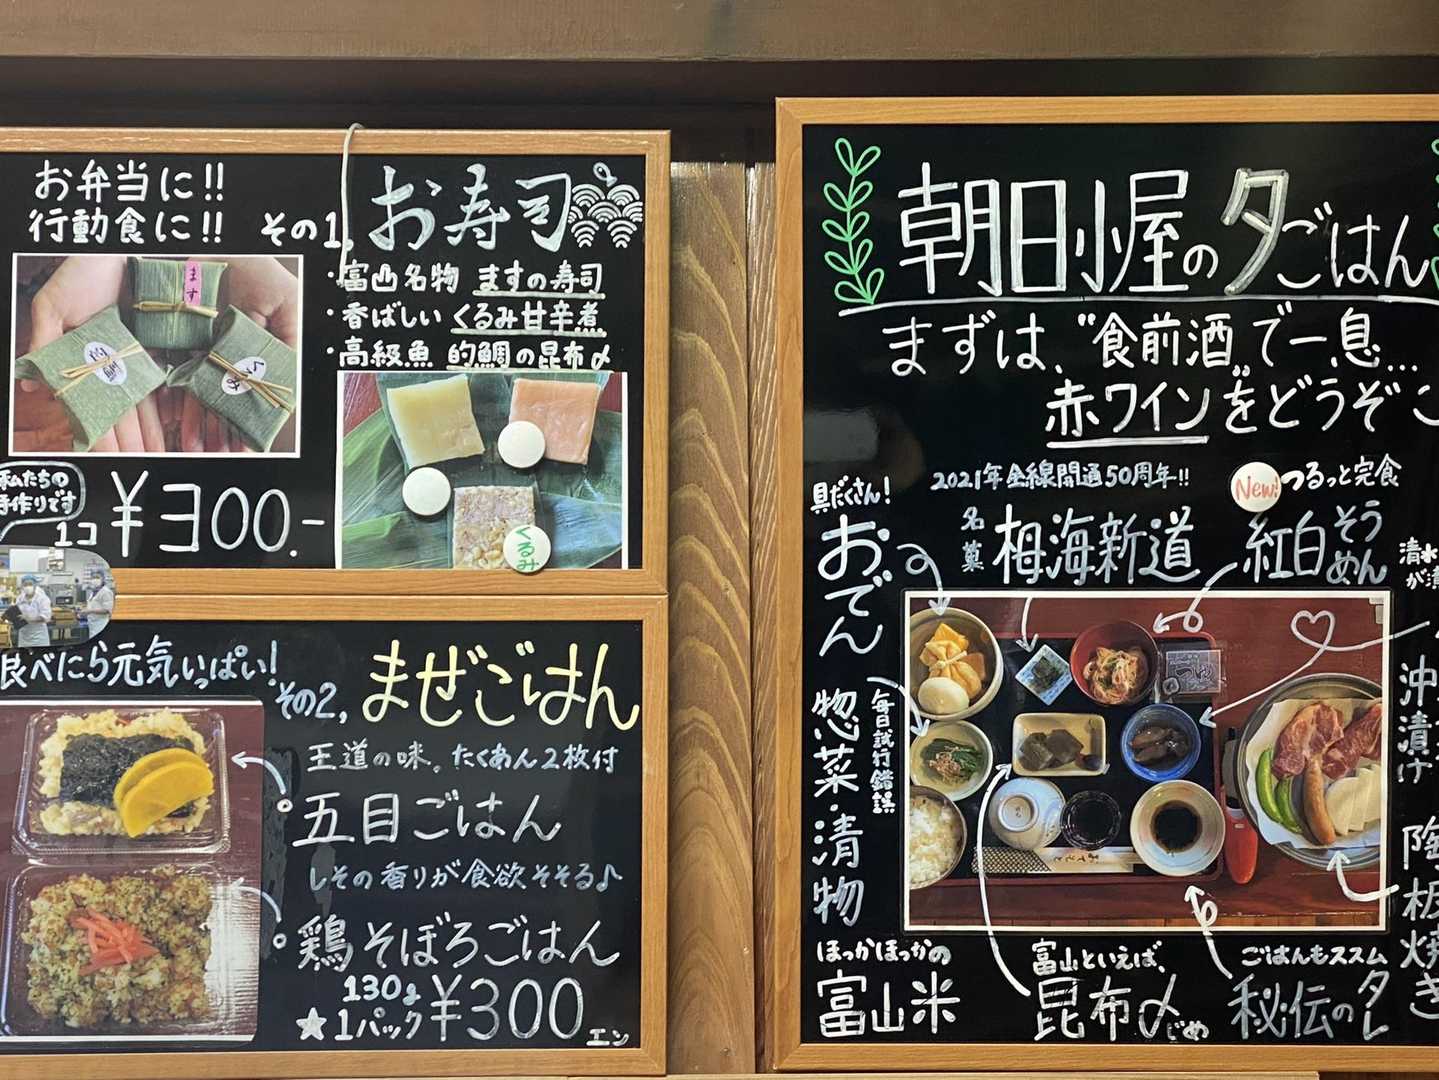 お弁当に!!
行動食に!!
その1,
お寿司
・富山名物 ますの寿司
・香ばしい くるみ甘辛煮
・高級魚 的鯛の昆布〆
ます
的鯛
くるみ
私たちの
手作りです
1コ ¥300.-
くるみ
食べたら元気いっぱい!
その2,
まぜごはん
王道の味。たくあん2枚付
五目ごはん
しその香りが食欲そそる♪
鶏そぼろごはん
130g
★1パック ¥300エン
朝日小屋の夕ごはん
まずは、"食前酒"で一息…
赤ワインをどうぞ
2021年全線開通50周年!!
New!
つるっと完食
具だくさん!
おでん
名菓
栂海新道
紅白そうめん
清水
が
沖
漬け
毎日試行錯誤
惣菜・漬物
つゆ
陶板焼き
ほっかほっかの
富山米
富山といえば、
昆布〆じめ
ごはんもススム
秘伝のタレ